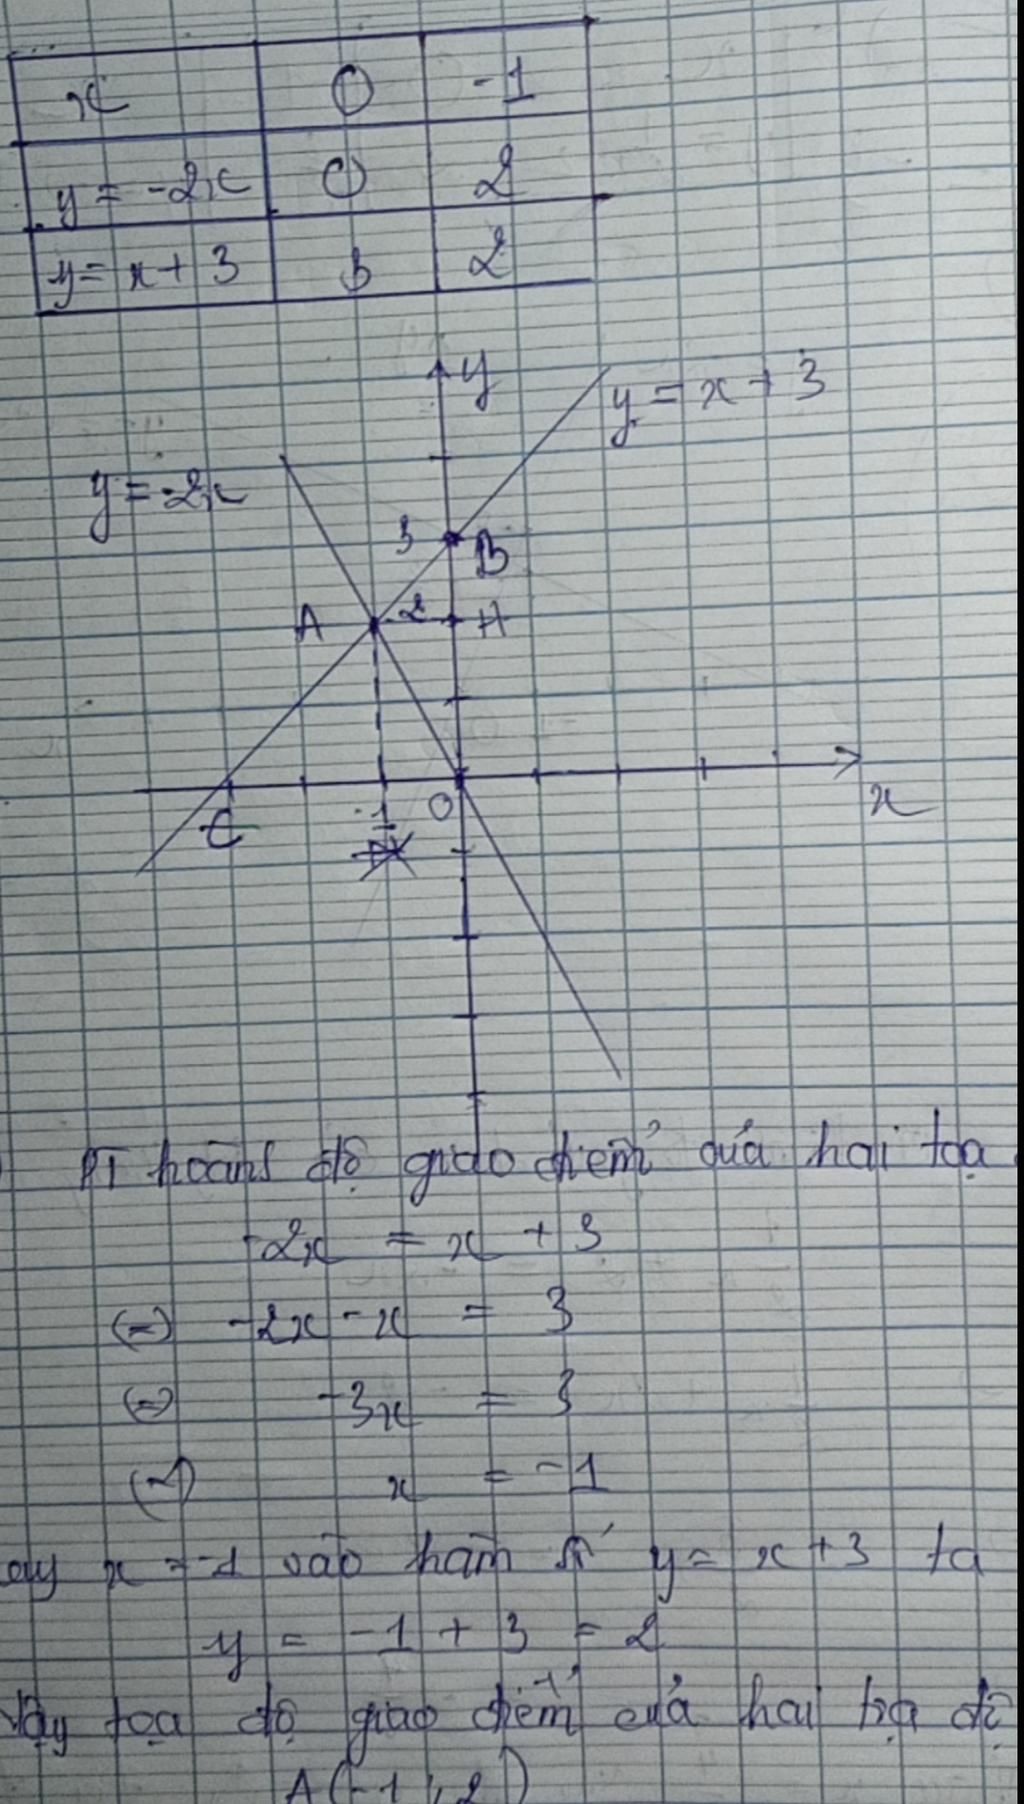 x 0 -1
y = -2x 0 2
y = x + 3 3 2
y
y = x + 3
y = -2x
3 B
A 2 H
C -1 O x
PT hoành độ giao điểm của hai toạ
-2x = x + 3
(=) -2x - x = 3
(=) -3x = 3
(=) x = -1
ay x = -1 vào hàm số y = x + 3 ta
y = -1 + 3 = 2
Vậy toạ độ giao điểm của hai toạ độ
A(-1; 2)